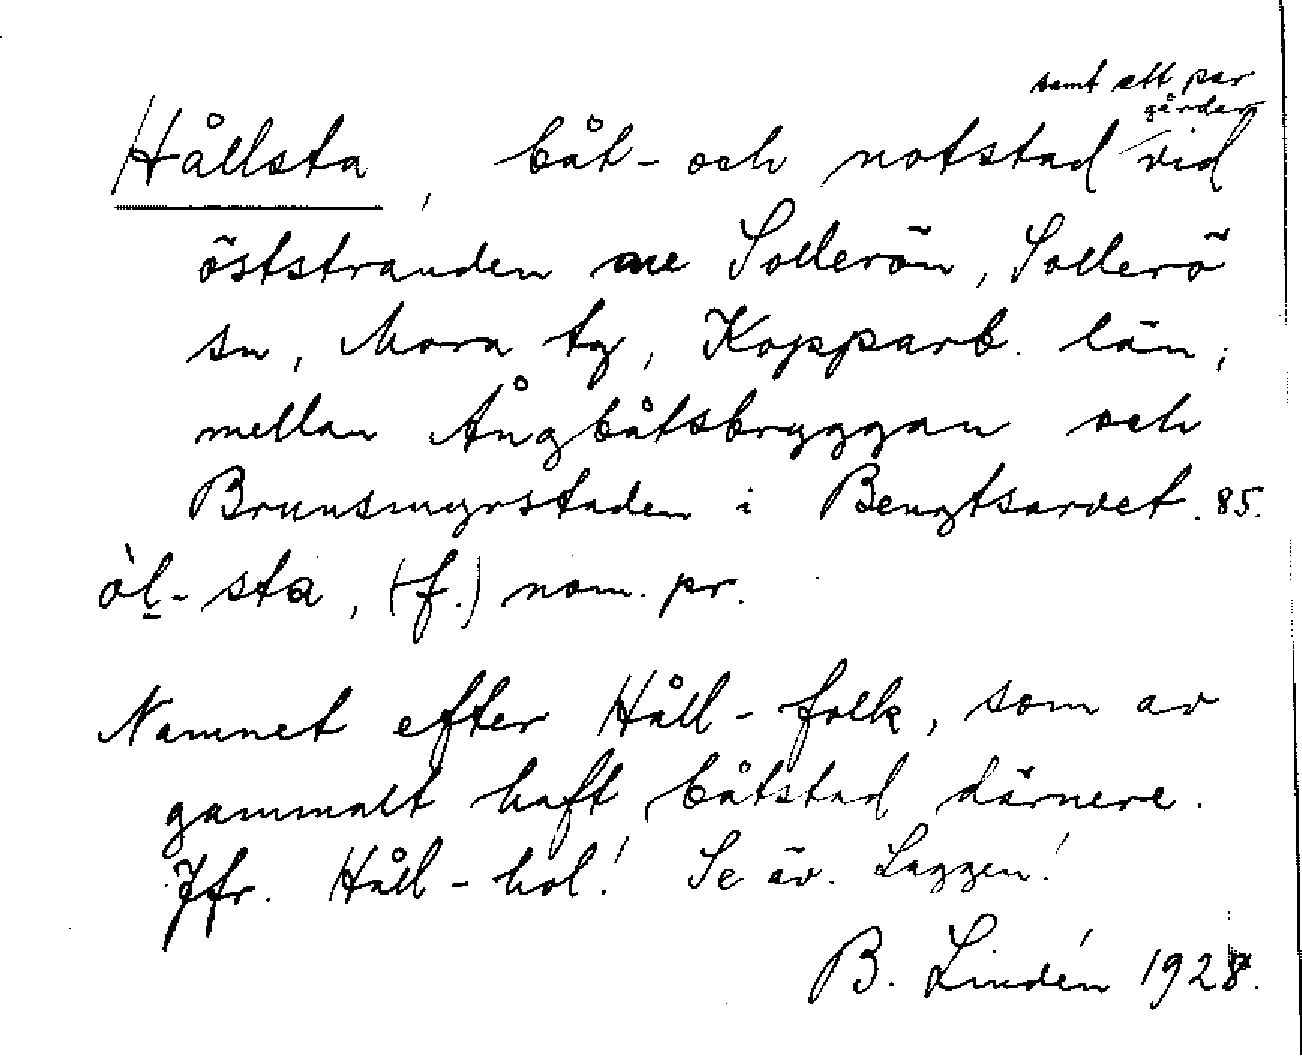 samt ett par
gårdar
Hållsta, båt- och notstad vid
öststranden av Sollerön, Sollerö
sn, Mora tg, Kopparb. län,
mellan Ångbåtsbryggan och
Brunsmyrstaden i Bengtsarvet. 85.
òl̠- sta, (f.) nom. pr.
Namnet efter Håll-folk, som av
gammalt haft båtstad därnere.
Jfr. Håll-hol! Se äv. Laggen!
B. Lindén 1928.